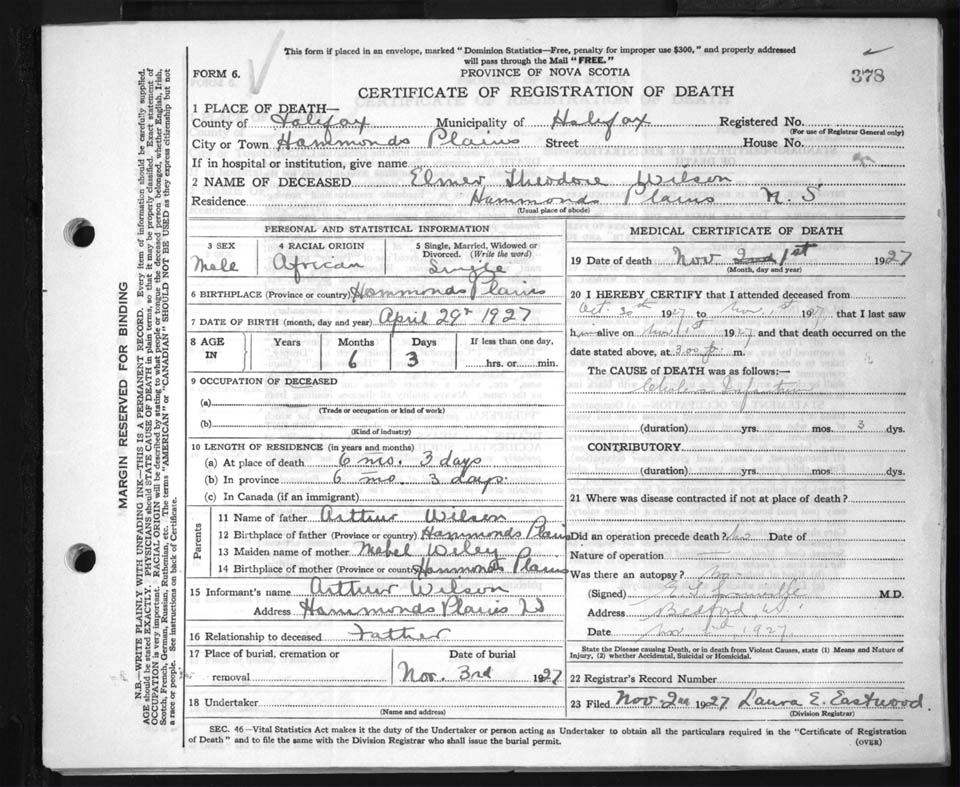 This form if placed in an envelope, marked "Dominion Statistics—Free, penalty for improper use $300," and properly addressed
will pass through the Mail "FREE."
FORM 6.
PROVINCE OF NOVA SCOTIA
378
CERTIFICATE OF REGISTRATION OF DEATH
1 PLACE OF DEATH—
County of Halifax Municipality of Halifax Registered No.
(For use of Registrar General only)
City or Town Hammonds Plains Street House No.
If in hospital or institution, give name
2 NAME OF DECEASED Elmer Theodore Wilson
Residence Hammonds Plains N. S
(Usual place of abode)
PERSONAL AND STATISTICAL INFORMATION
3 SEX 4 RACIAL ORIGIN 5 Single, Married, Widowed or
Divorced. (Write the word)
Male African Single
6 BIRTHPLACE (Province or country) Hammonds Plains
7 DATE OF BIRTH (month, day and year) April 29th 1927
8 AGE IN Years Months Days If less than one day,
6 3 hrs. or min.
9 OCCUPATION OF DECEASED
(a)
(Trade or occupation or kind of work)
(b)
(Kind of industry)
10 LENGTH OF RESIDENCE (in years and months)
(a) At place of death 6 mo. 3 days
(b) In province 6 mo. 3 days.
(c) In Canada (if an immigrant)
Parents
11 Name of father Arthur Wilson
12 Birthplace of father (Province or country) Hammonds Plains
13 Maiden name of mother Mabel Wiley
14 Birthplace of mother (Province or country) Hammonds Plains
15 Informant's name Arthur Wilson
Address Hammonds Plains W
16 Relationship to deceased Father
17 Place of burial, cremation or Date of burial
removal Nov. 3rd 1927
18 Undertaker
(Name and address)
MEDICAL CERTIFICATE OF DEATH
19 Date of death Nov 2nd 1st 1927
(Month, day and year)
20 I HEREBY CERTIFY that I attended deceased from
Oct. 30th 1927 to Nov. 1st 1927 that I last saw
him alive on Nov. 1st 1927 and that death occurred on the
date stated above, at 3.00 p. m.
The CAUSE of DEATH was as follows:—
Cholera Infantum
(duration) yrs. mos. 3 dys.
CONTRIBUTORY.
(duration) yrs. mos. dys.
21 Where was disease contracted if not at place of death?
Did an operation precede death? No Date of
Nature of operation
Was there an autopsy? no
(Signed) M.D.
Address Bedford
Date Nov 1927
State the Disease causing Death, or in death from Violent Causes, state (1) Means and Nature of
Injury, (2) whether Accidental, Suicidal or Homicidal.
22 Registrar's Record Number
23 Filed Nov. 2nd 1927 Laura E. Eastwood.
(Division Registrar)
SEC. 46—Vital Statistics Act makes it the duty of the Undertaker or person acting as Undertaker to obtain all the particulars required in the "Certificate of Registration
of Death" and to file the same with the Division Registrar who shall issue the burial permit.
(OVER)
MARGIN RESERVED FOR BINDING
N.B.—WRITE PLAINLY WITH UNFADING INK—THIS IS A PERMANENT RECORD. Every item of information should be carefully supplied.
AGE should be stated EXACTLY. PHYSICIANS should STATE CAUSE OF DEATH in plain terms, so that it may be properly classified. Exact statement of
OCCUPATION is very important. RACIAL ORIGIN will be described by stating to what people or tongue the deceased person belonged, whether English, Irish,
Scotch, French, German, Russian, Ruthenian, etc. The terms "AMERICAN" or "CANADIAN" SHOULD NOT BE USED as they express citizenship but not
a race or people. See instructions on back of Certificate.